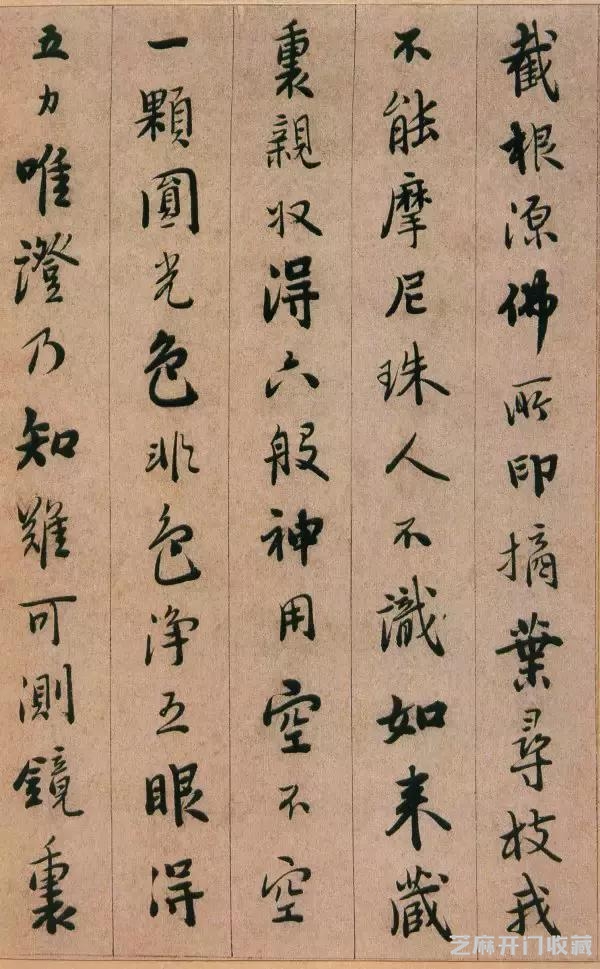 截根源佛所印摘葉尋枝我
不能摩尼珠人不識如来藏
裏親収得六般神用空不空
一顆圓光色非色净五眼得
五力唯證乃知難可測鏡裏
芝麻开门收藏